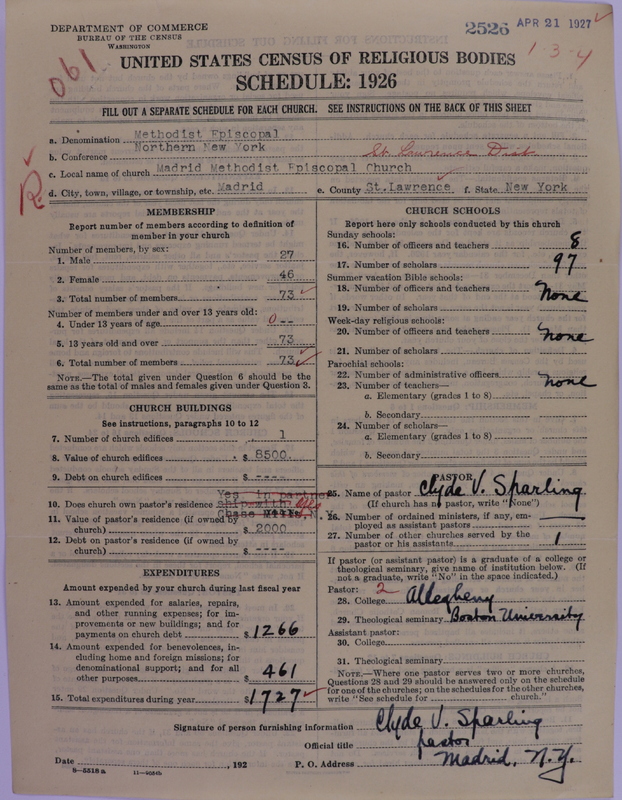 DEPARTMENT OF COMMERCE
BUREAU OF THE CENSUS
WASHINGTON
2526 APR 21 1927
061
1-3-4
UNITED STATES CENSUS OF RELIGIOUS BODIES
SCHEDULE: 1926
FILL OUT A SEPARATE SCHEDULE FOR EACH CHURCH. SEE INSTRUCTIONS ON THE BACK OF THIS SHEET
a. Denomination Methodist Episcopal
b. Conference Northern New York St. Lawrence Dist.
c. Local name of church Madrid Methodist Episcopal Church
d. City, town, village, or township, etc. Madrid e. County St.Lawrence f. State New York
R
MEMBERSHIP
Report number of members according to definition of
member in your church
Number of members, by sex:
1. Male 27
2. Female 46
3. Total number of members 73
Number of members under and over 13 years old:
4. Under 13 years of age 0 --
5. 13 years old and over 73
6. Total number of members 73
NOTE.—The total given under Question 6 should be the
same as the total of males and females given under Question 3.
CHURCH BUILDINGS
See instructions, paragraphs 10 to 12
7. Number of church edifices 1
8. Value of church edifices $ 8500.
9. Debt on church edifices $ ----
10. Does church own pastor's residence Yes in partner
ship with
Chase Mills, N.Y.
11. Value of pastor's residence (if owned by
church) $ 2000
12. Debt on pastor's residence (if owned by
church) $ ----
EXPENDITURES
Amount expended by your church during last fiscal year
13. Amount expended for salaries, repairs,
and other running expenses; for im-
provements or new buildings; and for
payments on church debt $ 1266
14. Amount expended for benevolences, in-
cluding home and foreign missions; for
denominational support; and for all
other purposes $ 461
15. Total expenditures during year $ 1727
CHURCH SCHOOLS
Report here only schools conducted by this church
Sunday schools:
16. Number of officers and teachers 8
17. Number of scholars 97
Summer vacation Bible schools:
18. Number of officers and teachers None
19. Number of scholars
Week-day religious schools:
20. Number of officers and teachers None
21. Number of scholars
Parochial schools:
22. Number of administrative officers None
23. Number of teachers—
a. Elementary (grades 1 to 8)
b. Secondary
24. Number of scholars—
a. Elementary (grades 1 to 8)
b. Secondary
PASTOR
25. Name of pastor Clyde V. Sparling
(If church has no pastor, write "None")
26. Number of ordained ministers, if any, em-
ployed as assistant pastors
27. Number of other churches served by the
pastor or his assistants 1
If pastor (or assistant pastor) is a graduate of a college or
theological seminary, give name of institution below. (If
not a graduate, write "No" in the space indicated.)
Pastor: 2
28. College Allegheny
29. Theological seminary Boston University
Assistant pastor:
30. College
31. Theological seminary
NOTE.—Where one pastor serves two or more churches,
Questions 28 and 29 should be answered only on the schedule
for one of the churches; on the schedules for the other churches,
write "See schedule for church."
Signature of person furnishing information Clyde V. Sparling
Official title pastor
Date , 192 P. O. Address Madrid, N.Y.
8—5518a 11—9034b